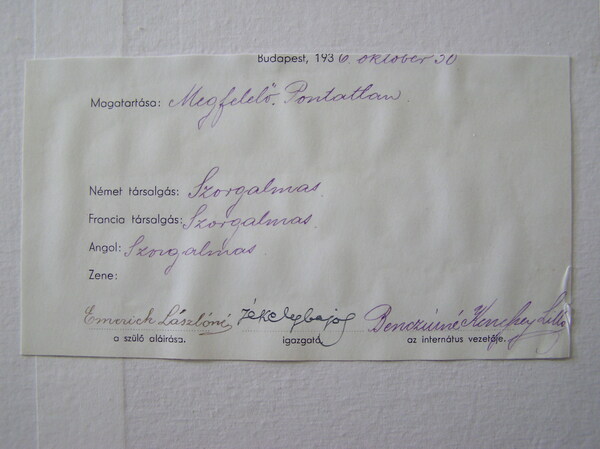 Budapest, 1936 október 30
Magatartása: Megfelelő. Pontatlan.
Német társalgás: Szorgalmas.
Francia társalgás: Szorgalmas.
Angol: Szorgalmas
Zene:
Emerich Lászlóné Benczúrné Lilly
a szülő aláírása. igazgató az internátus vezetője.